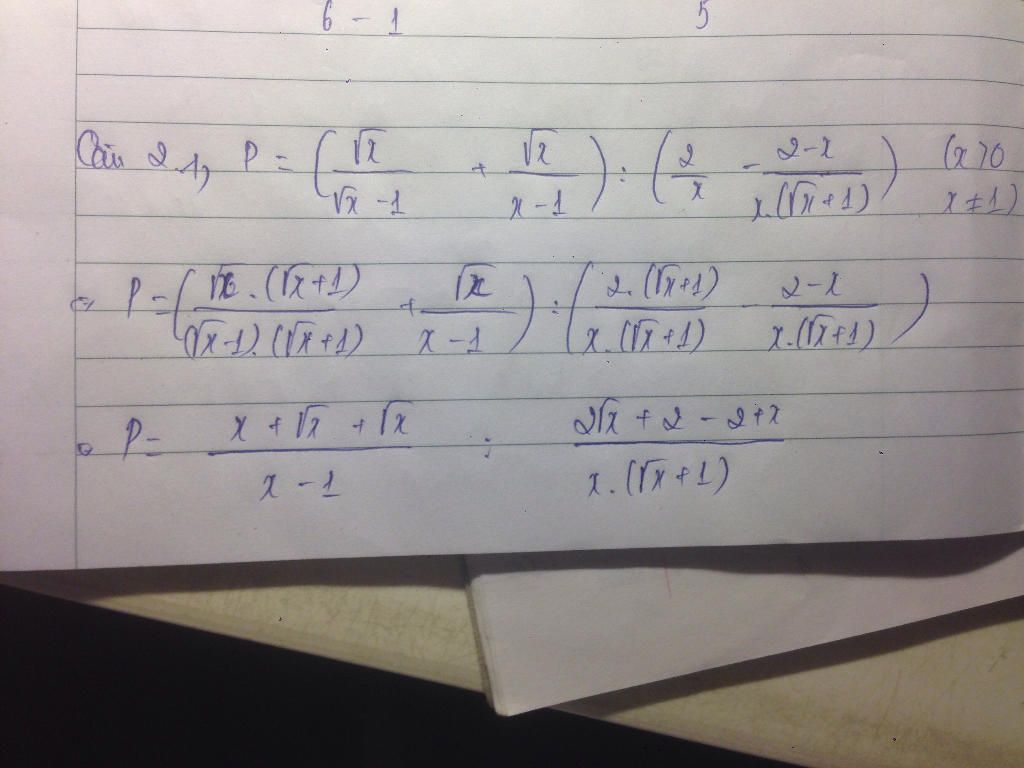 6 - 1 5
Câu 2 1, P = (√x/(√x - 1) + √x/(x - 1)) : (2/x - (2 - x)/(x.(√x + 1))) (x > 0 x ≠ 1)
=> P = (√x.(√x + 1)/((√x - 1).(√x + 1)) + √x/(x - 1)) : (2.(√x + 1)/(x.(√x + 1)) - (2 - x)/(x.(√x + 1)))
=> P = (x + √x + √x)/(x - 1) : (2√x + 2 - 2 + x)/(x.(√x + 1))